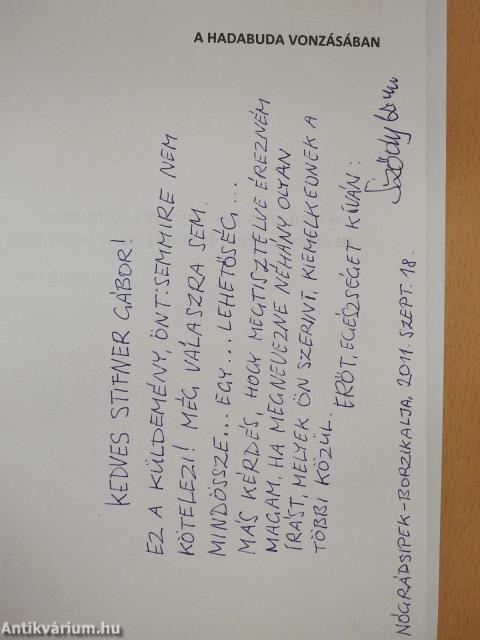 A HADABUDA VONZÁSÁBAN
KEDVES STIFNER GÁBOR!
EZ A KÜLDEMÉNY, ÖNT: SEMMIRE NEM
KÖTELEZI! MÉG, VÁLASZRA SEM.
MINDÖSSZE... EGY... LEHETŐSÉG...
MÁS KÉRDÉS, HOGY MEGTISZTELVE ÉREZNÉM
MAGAM, HA MEGNEVEZNE NÉHÁNY OLYAN
ÍRÁST, MELYEK ÖN SZERINT, KIEMELKEDNEK A
TÖBBI KÖZÜL.
ERŐT, EGÉSZSÉGET KÍVÁN:
NÓGRÁDSIPEK-BORZIKALJA, 2011. SZEPT. 18.
Antikvárium.hu